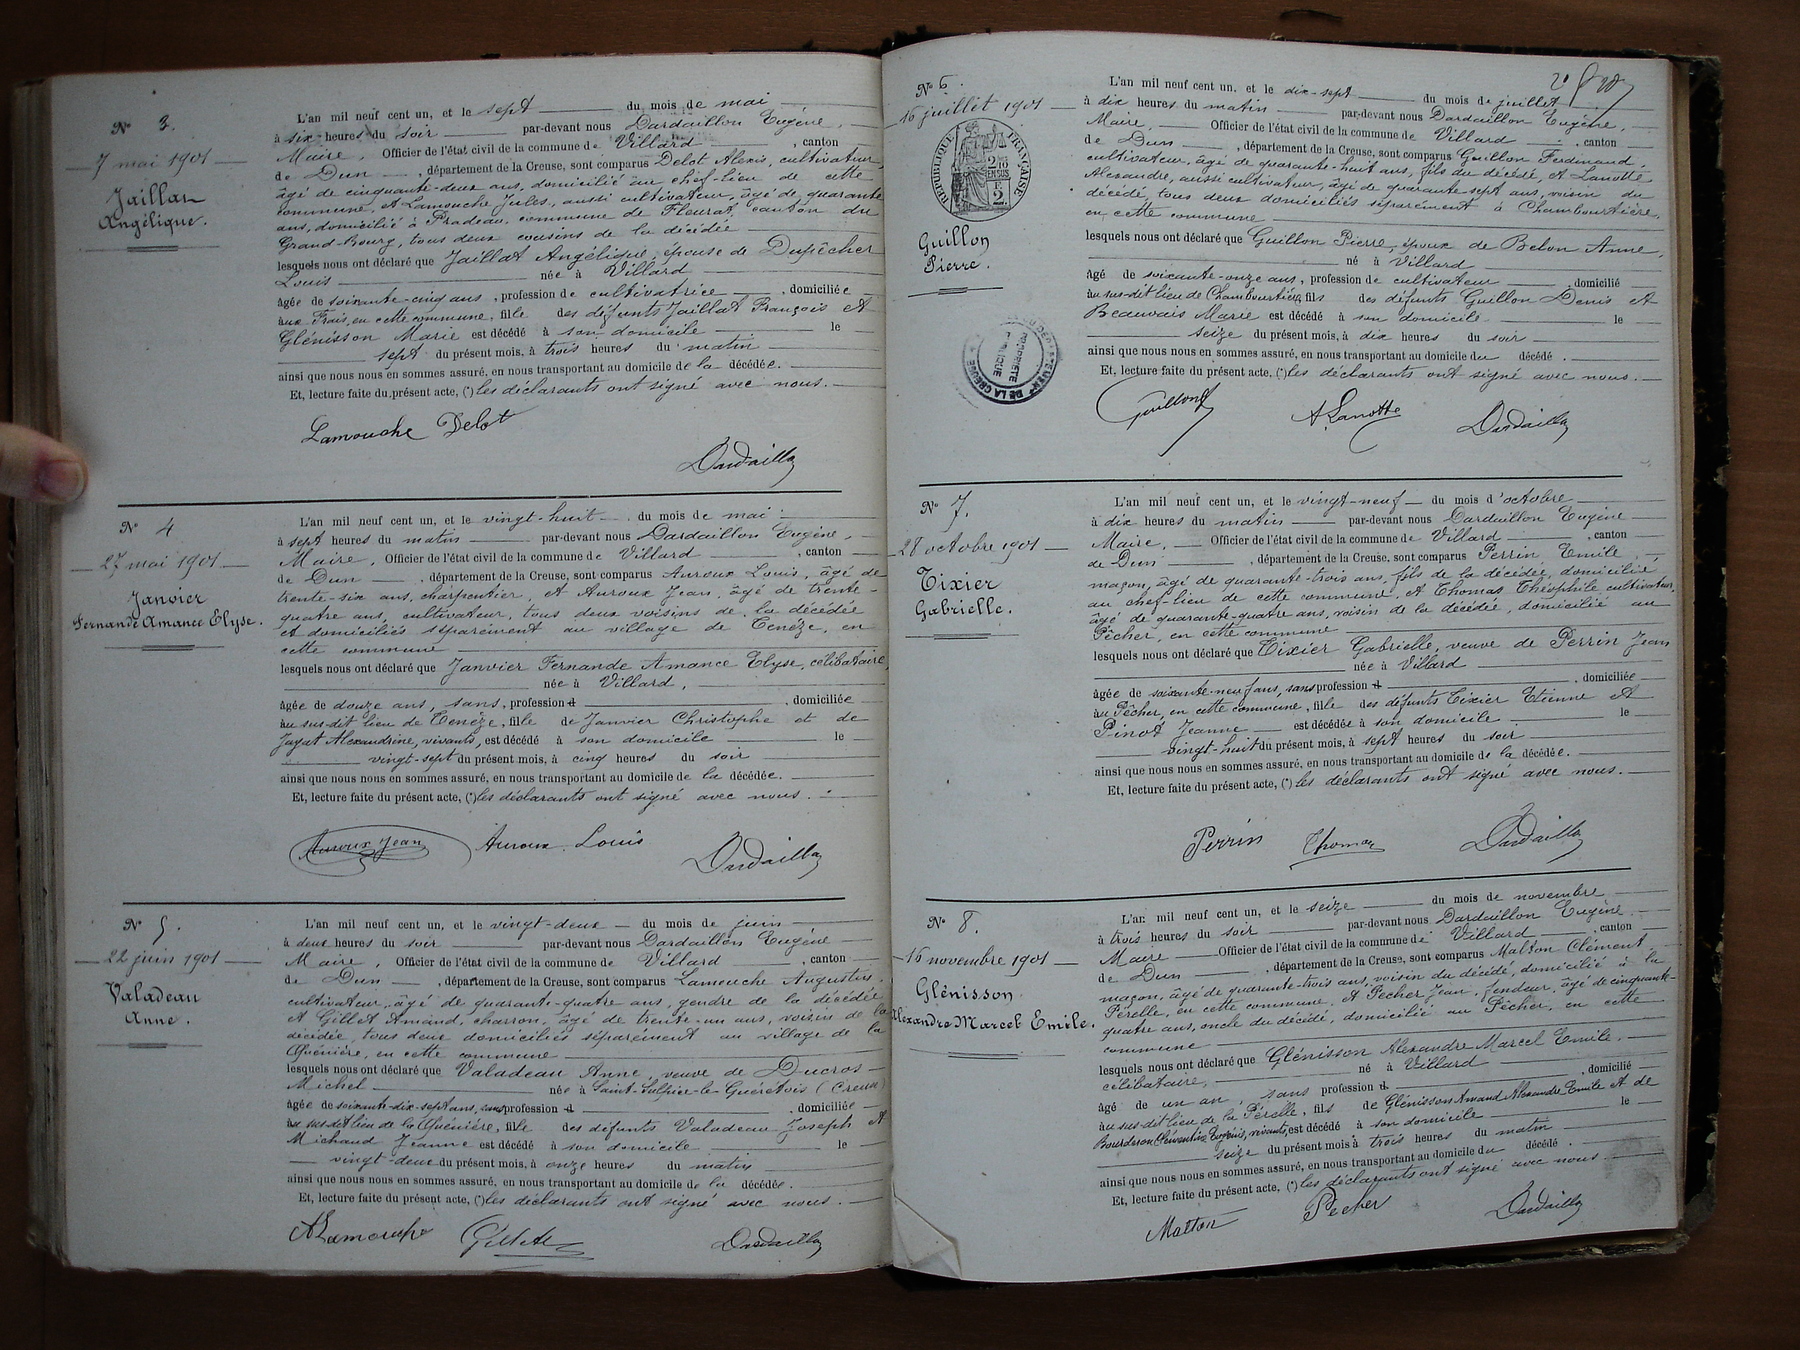 N° 3.
7 mai 1901
Jaillat
Angélique.
L'an mil neuf cent un, et le sept du mois de mai
à six heures du soir par-devant nous Dardaillon Eugène,
Maire, Officier de l'état civil de la commune de Villard, canton
de Dun, département de la Creuse, sont comparus Delot Alexis, cultivateur
âgé de cinquante-deux ans, domicilié au chef-lieu de cette
commune, et Lamouche Jules, aussi cultivateur, âgé de quarante
ans, domicilié à Pradeau, commune de Fleurat, canton du
Grand-Bourg, tous deux cousins de la décédée
lesquels nous ont déclaré que Jaillat Angélique, épouse de Dupêcher
Louis née à Villard
âgée de soixante-cinq ans, profession de cultivatrice, domiciliée
aux Frais, en cette commune, fille des défunts Jaillat François et
Glénisson Marie est décédé à son domicile le
sept du présent mois, à trois heures du matin
ainsi que nous nous en sommes assuré, en nous transportant au domicile de la décédée.
Et, lecture faite du présent acte, (*) les déclarants ont signé avec nous.
Lamouche Delot
Dardaillon
N° 4
27 mai 1901
Janvier
Fernande Amance Elyse.
L'an mil neuf cent un, et le vingt-huit du mois de mai
à sept heures du matin par-devant nous Dardaillon Eugène,
Maire, Officier de l'état civil de la commune de Villard, canton
de Dun, département de la Creuse, sont comparus Auroux Louis, âgé de
trente-six ans, charpentier, et Auroux Jean, âgé de trente-
quatre ans, cultivateur, tous deux voisins de la décédée
et domiciliés séparément au village de Cenèze, en
cette commune
lesquels nous ont déclaré que Janvier Fernande Amance Elyse, célibataire,
née à Villard,
âgée de douze ans, sans, profession d, domiciliée
au sus-dit lieu de Cenèze, fille de Janvier Christophe et de
Jayat Alexandrine, vivants, est décédé à son domicile le
vingt-sept du présent mois, à cinq heures du soir
ainsi que nous nous en sommes assuré, en nous transportant au domicile de la décédée.
Et, lecture faite du présent acte, (*) les déclarants ont signé avec nous.
Auroux Jean Auroux Louis
Dardaillon
N° 5.
22 juin 1901
Valadeau
Anne.
L'an mil neuf cent un, et le vingt-deux du mois de juin
à deux heures du soir par-devant nous Dardaillon Eugène
Maire, Officier de l'état civil de la commune de Villard, canton
de Dun, département de la Creuse, sont comparus Lamouche Augustin,
cultivateur, âgé de quarante-quatre ans, gendre de la décédée
et Gillet Amand, charron, âgé de trente-un ans, voisin de la
décédée, tous deux domiciliés séparément au village de la
en cette commune
lesquels nous ont déclaré que Valadeau Anne, veuve de Ducros
Michel née à Saint-Sulpice-le-Guérétois (Creuse)
âgée de soixante-dix-sept ans, sans profession d, domiciliée
au sus-dit lieu de la fille des défunts Valadeau Joseph et
Michaud Jeanne est décédé à son domicile le
vingt-deux du présent mois, à onze heures du matin
ainsi que nous nous en sommes assuré, en nous transportant au domicile de la décédée.
Et, lecture faite du présent acte, (*) les déclarants ont signé avec nous.
ALamouche Gillet A
Dardaillon
N° 6.
16 juillet 1901
RÉPUBLIQUE FRANÇAISE
2/10 EN SUS
F
2
Guillon
Pierre.
PROPRIÉTÉ PUBLIQUE
DE LA CREUSE
L'an mil neuf cent un, et le dix-sept du mois de juillet
à dix heures du matin par-devant nous Dardaillon Eugène,
Maire, Officier de l'état civil de la commune de Villard, canton
de Dun, département de la Creuse, sont comparus Guillon Ferdinand,
cultivateur, âgé de quarante-huit ans, fils du décédé, et Lanotte
Alexandre, aussi cultivateur, âgé de quarante-sept ans, voisin du
décédé, tous deux domiciliés séparément à Chambourtière,
en cette commune
lesquels nous ont déclaré que Guillon Pierre, époux de Belon Anne,
né à Villard
âgé de soixante-onze ans, profession de cultivateur, domicilié
au sus-dit lieu de Chambourtière, fils des défunts Guillon Denis et
Beauvais Marie est décédé à son domicile le
seize du présent mois, à dix heures du soir
ainsi que nous nous en sommes assuré, en nous transportant au domicile du décédé.
Et, lecture faite du présent acte, (*) les déclarants ont signé avec nous.
Guillon f A. Lanotte Dardaillon
N° 7.
28 octobre 1901
Tixier
Gabrielle.
L'an mil neuf cent un, et le vingt-neuf du mois d'octobre
à dix heures du matin par-devant nous Dardaillon Eugène
Maire, Officier de l'état civil de la commune de Villard, canton
de Dun, département de la Creuse, sont comparus Perrin Emile,
maçon, âgé de quarante-trois ans, fils de la décédée, domicilié
au chef-lieu de cette commune, et Thomas Théophile cultivateur,
âgé de quarante-quatre ans, voisin de la décédée, domicilié au
Pêcher, en cette commune
lesquels nous ont déclaré que Tixier Gabrielle, veuve de Perrin Jean
née à Villard
âgée de soixante-neuf ans, sans profession d, domiciliée
au Pêcher, en cette commune, fille des défunts Tixier Etienne et
Pinot Jeanne est décédée à son domicile le
vingt-huit du présent mois, à sept heures du soir
ainsi que nous nous en sommes assuré, en nous transportant au domicile de la décédée.
Et, lecture faite du présent acte, (*) les déclarants ont signé avec nous.
Perrin Thomas Dardaillon
N° 8.
16 novembre 1901
Glénisson
Alexandre Marcel Emile.
L'an mil neuf cent un, et le seize du mois de novembre
à trois heures du soir par-devant nous Dardaillon Eugène
Maire Officier de l'état civil de la commune de Villard, canton
de Dun, département de la Creuse, sont comparus Malton Clément,
maçon, âgé de quarante-trois ans, voisin du décédé, domicilié à la
Pérelle, en cette commune, et Pecher Jean, fendeur, âgé de cinquante-
quatre ans, oncle du décédé, domicilié au Pêcher, en cette
commune
lesquels nous ont déclaré que Glénisson Alexandre Marcel Emile,
célibataire, né à Villard
âgé de un an, sans profession d, domicilié
au sus-dit lieu de la Pérelle, fils de Glénisson Amand Alexandre Emile et de
Bourderon Clémentine Eugénie, vivants, est décédé à son domicile le
seize du présent mois à trois heures du matin
ainsi que nous nous en sommes assuré, en nous transportant au domicile du décédé.
Et, lecture faite du présent acte, (*) les déclarants ont signé avec nous.
Malton Pecher Dardaillon